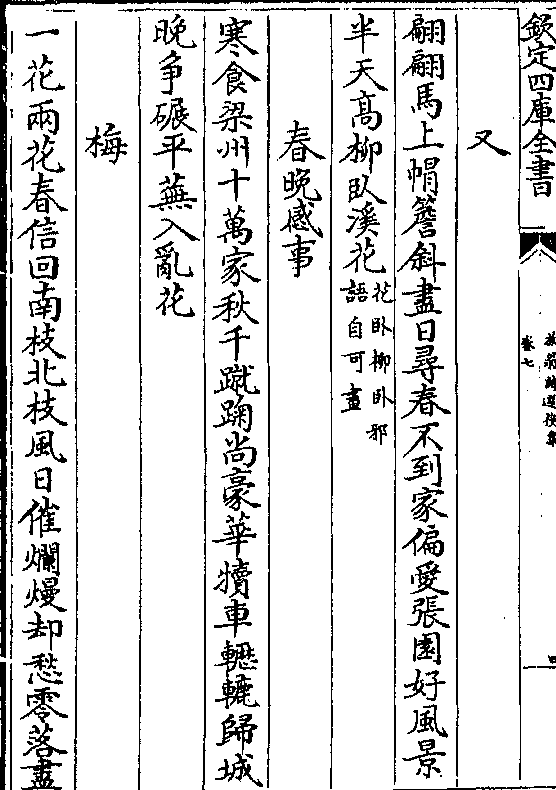 欽定四庫全書
放翁詩選後集
卷七
四
又
翩翩馬上帽簷斜盡日尋春不到家偏愛張園好風景
半天髙柳臥溪花
花臥柳臥邪
語自可畫
春晚感事
寒食梁州十萬家秋千蹴踘尚豪華犢車轣轆歸城
晚爭碾平蕪入亂花
梅
一花兩花春信回南枝北枝風日催爛熳却愁零落盡